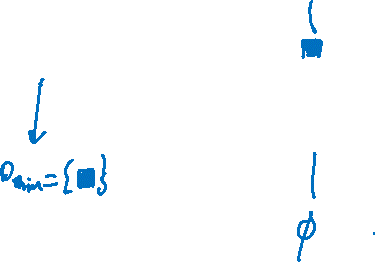 ■
D_min = {■}
ϕ